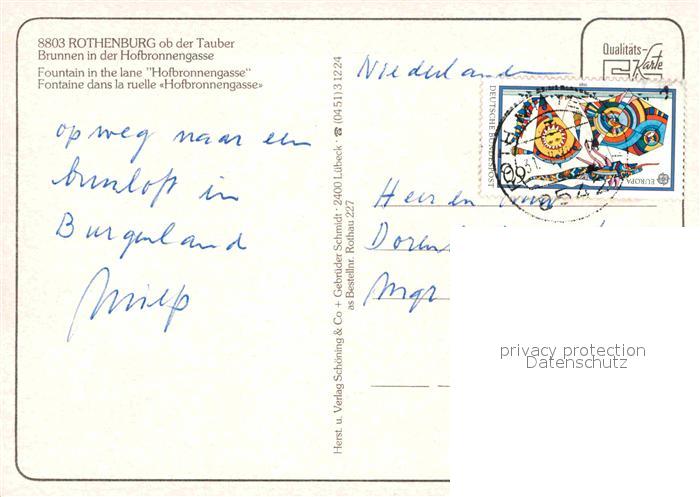 8803 ROTHENBURG ob der Tauber
Brunnen in der Hofbronnengasse
Fountain in the lane "Hofbronnengasse"
Fontaine dans la ruelle «Hofbronnengasse»
op weg naar een
in
Burgenland
Herst. u. Verlag Schöning & Co + Gebrüder Schmidt · 2400 Lübeck · ☎ (04 51) 3 12 24
as Bestellnr. Rothau 227
Qualitäts-
Karte
Niederlande
DEUTSCHE BUNDESPOST
EUROPA
Heer en
Doren
Mgr
privacy protection
Datenschutz